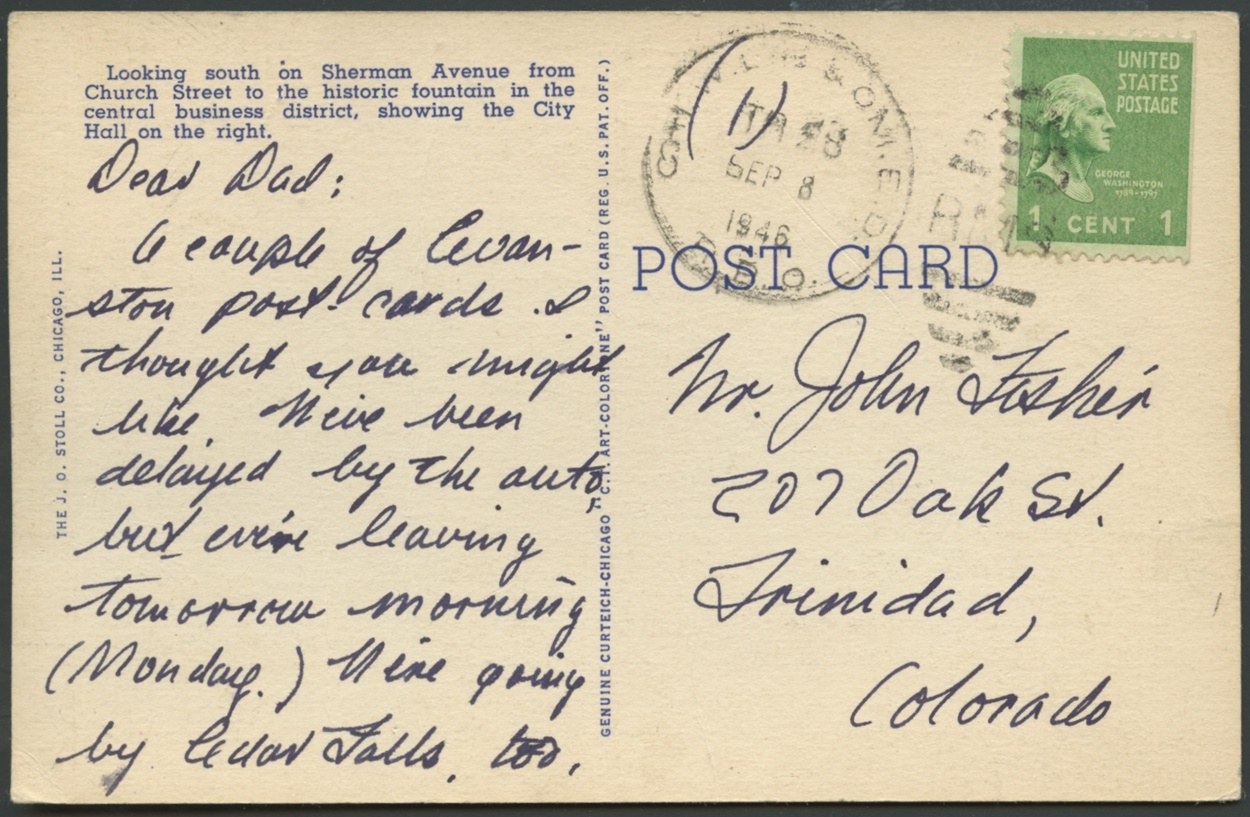 Looking south on Sherman Avenue from
Church Street to the historic fountain in the
central business district, showing the City
Hall on the right.
Dear Dad:
A couple of Evan-
ston post-cards I
thought you might
like. We've been
delayed by the auto,
but we're leaving
tomorrow morning
(Monday.) We're going
by Cedar Falls, too.
THE J. O. STOLL CO., CHICAGO, ILL.
GENUINE CURTEICH-CHICAGO "C.T. ART-COLORTONE" POST CARD (REG. U.S. PAT. OFF.)
(1)
SEP 8
1946
R.P.O.
RMS
UNITED
STATES
POSTAGE
GEORGE
WASHINGTON
1789-1797
1 CENT 1
POST CARD
Mr. John Fisher
207 Oak St.
Trinidad,
Colorado